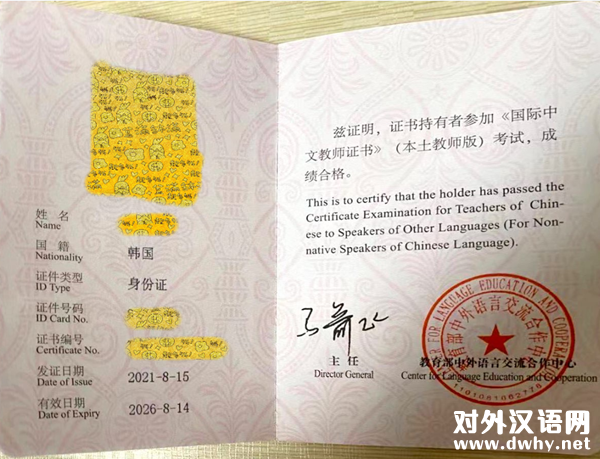 姓 名
Name
国 籍
Nationality
韩国
证件类型
ID Type
身份证
证件号码
ID Card No.
证书编号
Certificate No.
发证日期
Date of Issue
2021-8-15
有效日期
Date of Expiry
2026-8-14
兹证明，证书持有者参加《国际中
文教师证书》（本土教师版）考试，成
绩合格。
This is to certify that the holder has passed the
Certificate Examination for Teachers of Chin-
ese to Speakers of Other Languages (For Non-
native Speakers of Chinese Language).
主 任
Director General
教育部中外语言交流合作中心
Center for Language Education and Cooperation
对外汉语网
www.dwhy.net